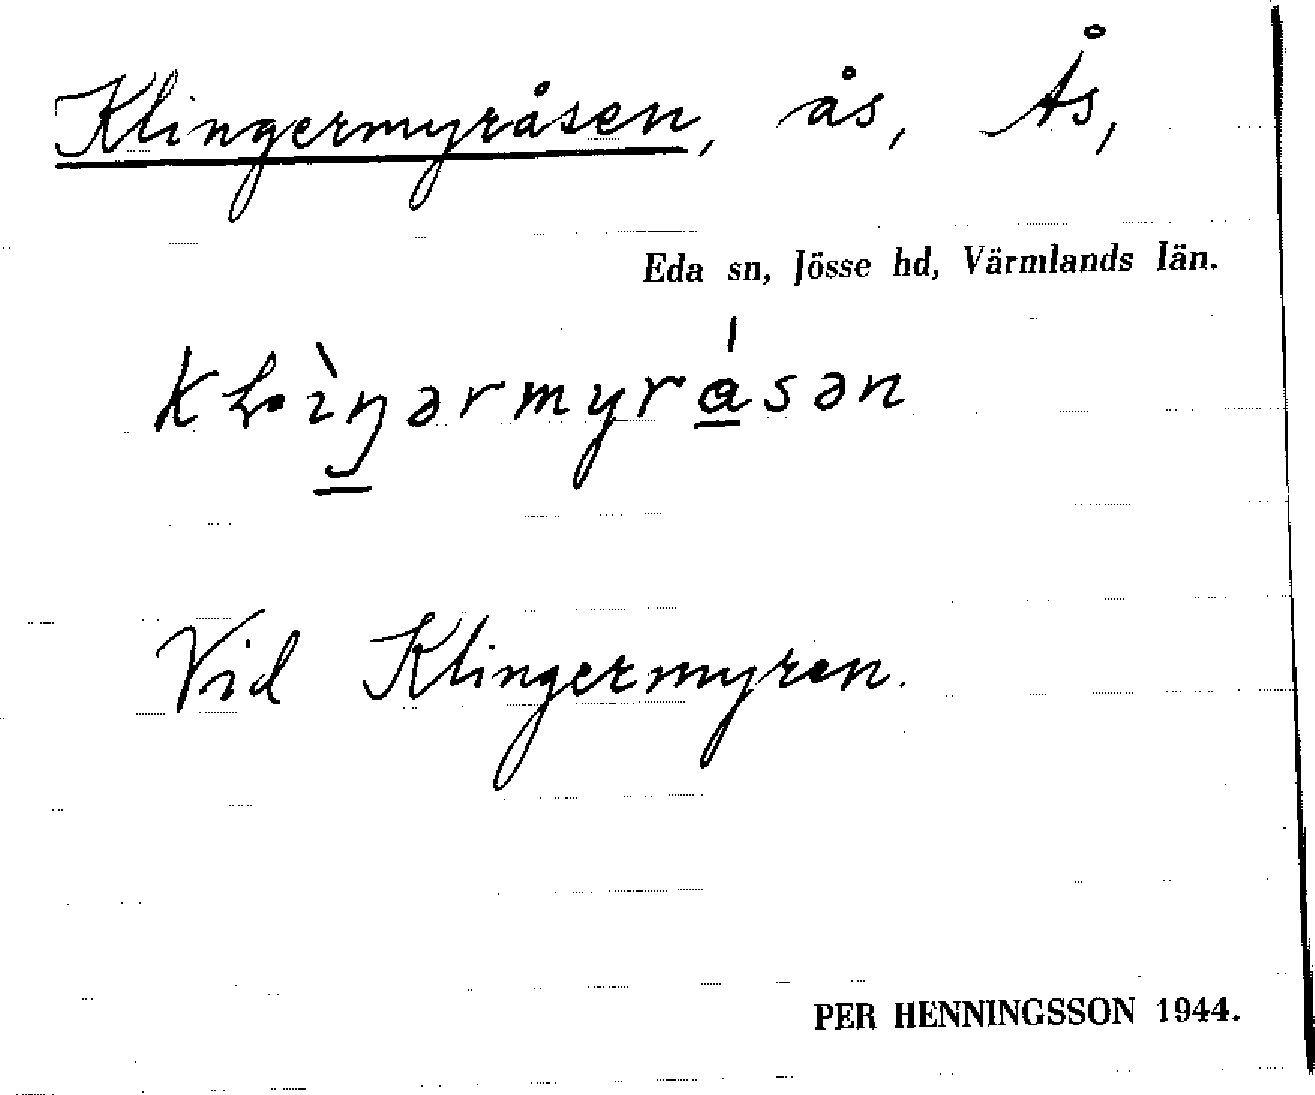 Klingermyråsen, ås, Ås,
Eda sn, Jösse hd, Värmlands län.
Vid Klingermyren.
PER HENNINGSSON 1944.